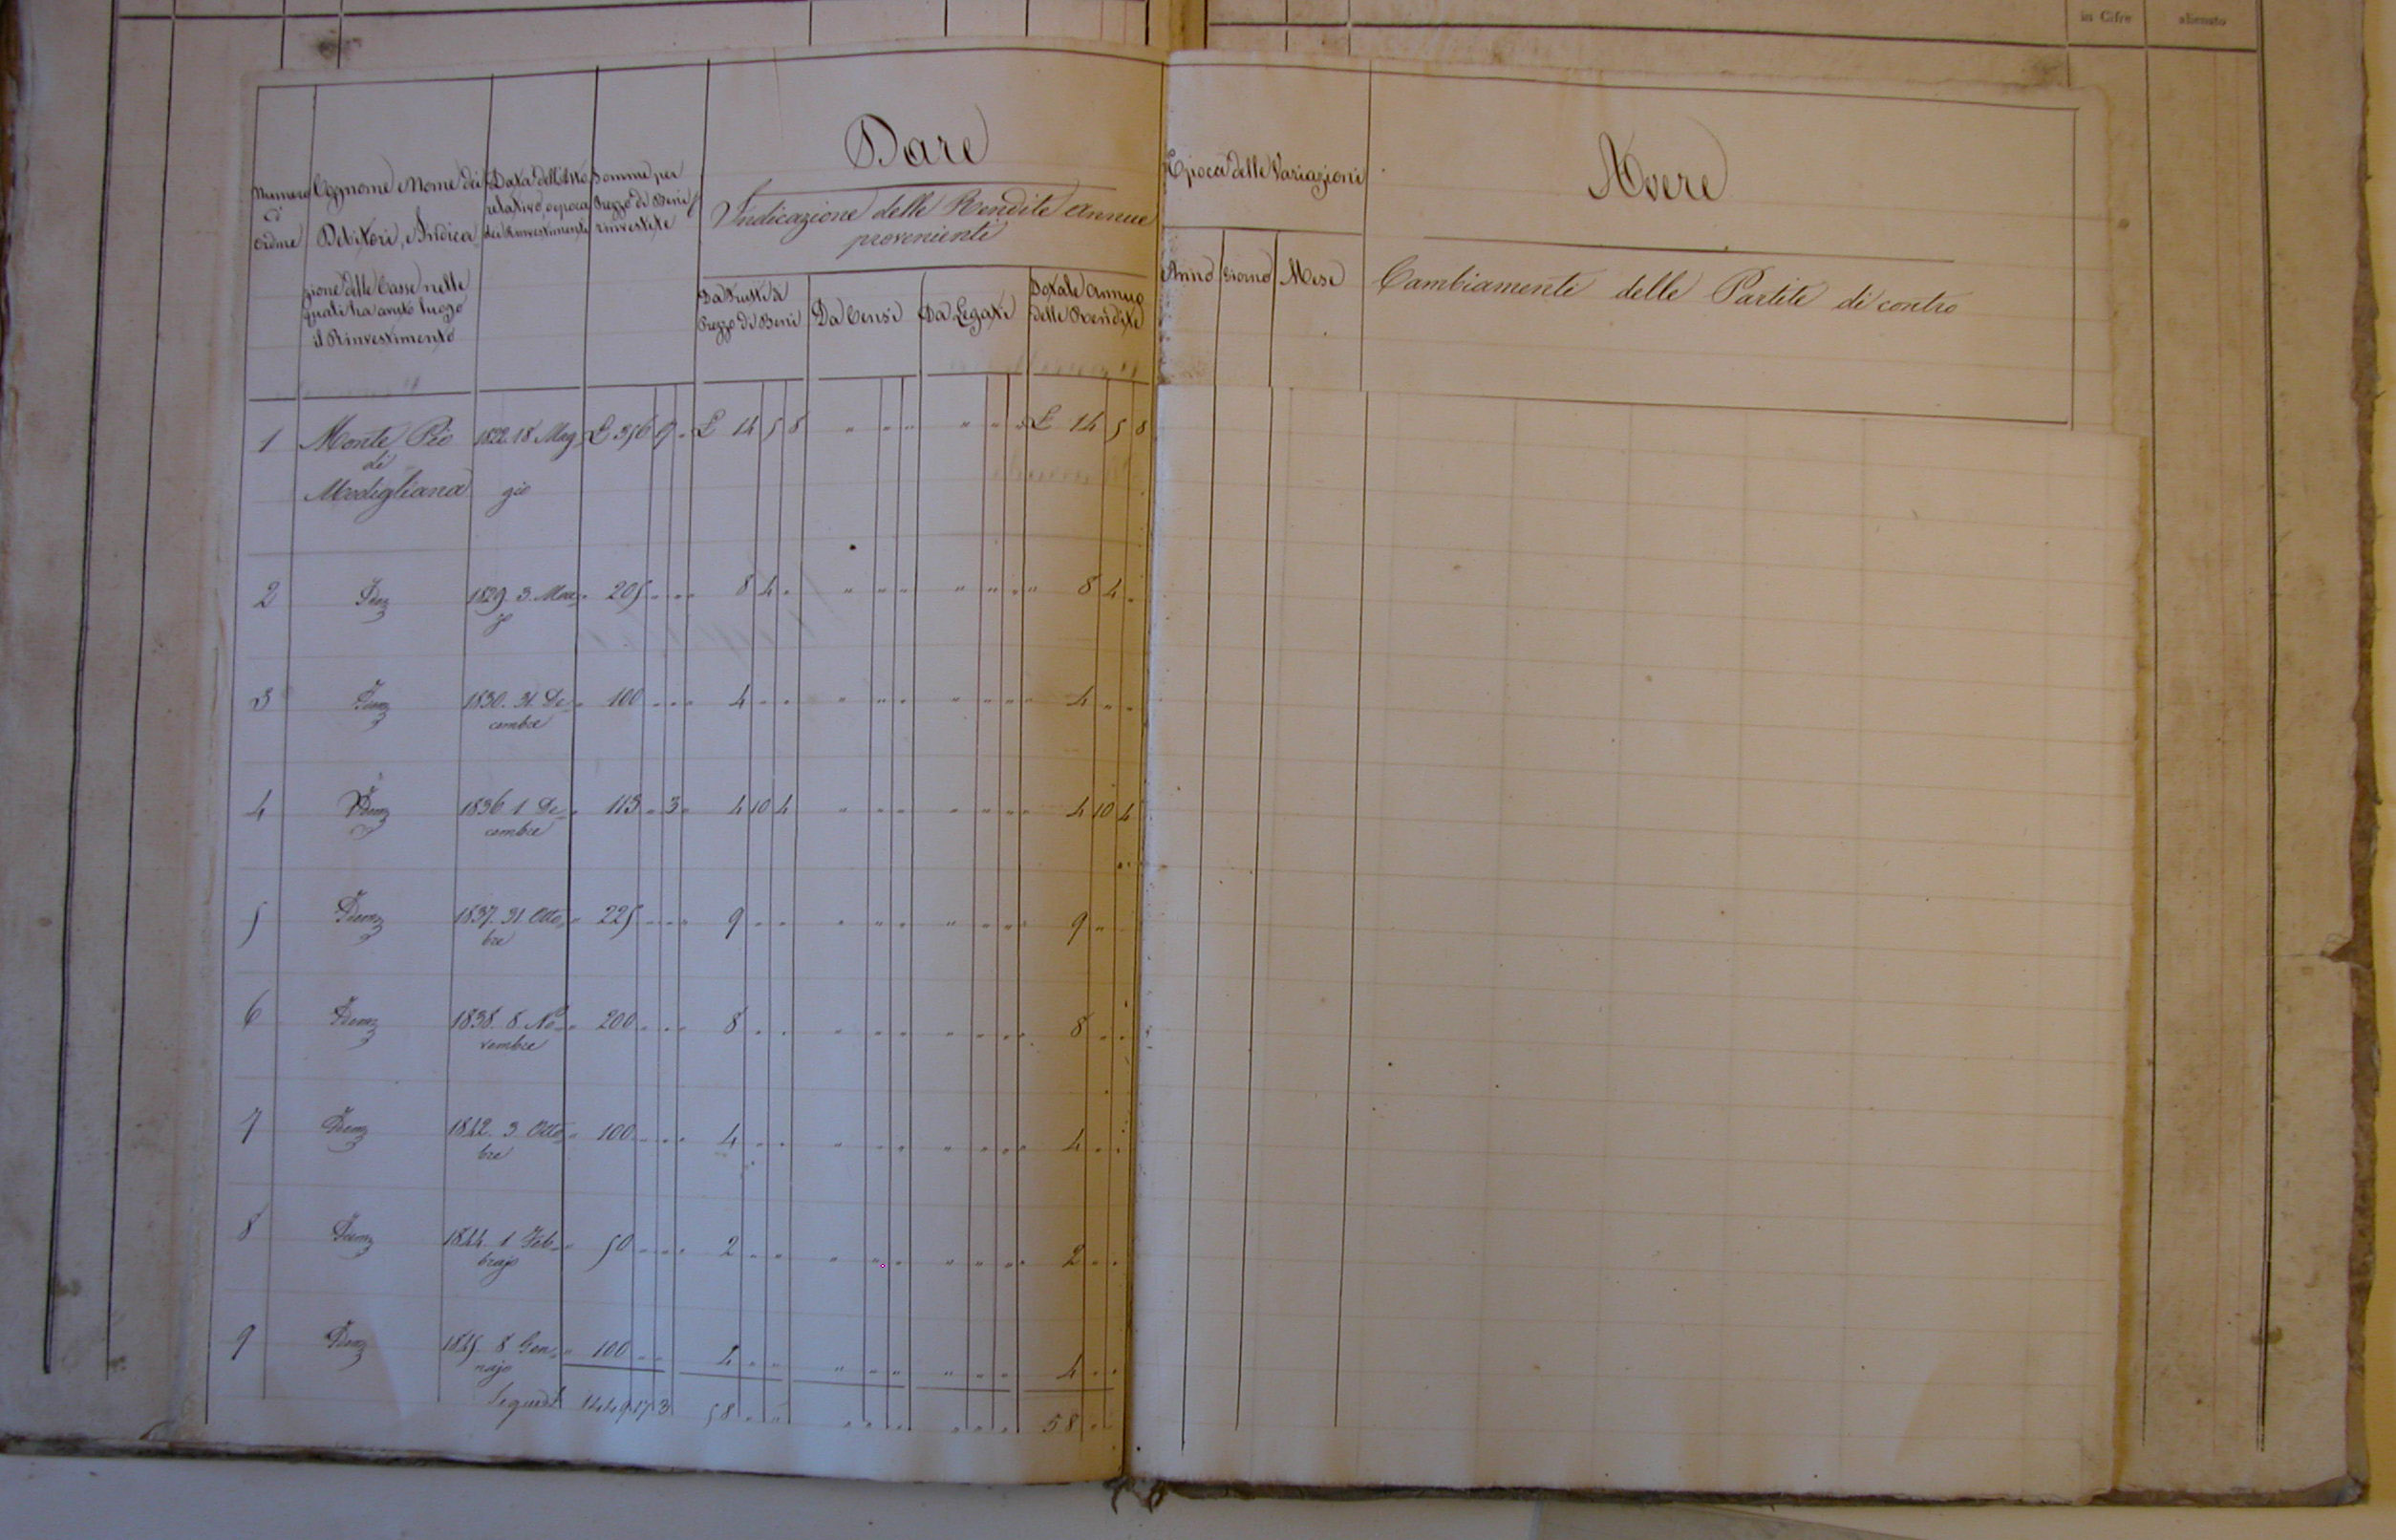 in Cifre alienato
Dare
Numero
d'
Ordine
Cognome e Nome dei
Debitori, e Indica
zione delle Casse nelle
quali ha avuto luogo
il Rinvestimento
Data dell'Atto
relativo, o epoca
dei Rinvestimenti
Somme per
Prezzo di Beni
rinvestite
Indicazione delle Rendite annue
provenienti
Da Frutti di
Prezzo di Beni
Da Censi
Da Legati
Totale annuo
delle Rendite
1 Monte Pio 1822. 18 Mag £ 356 9 " £ 14 5 8 " " " " " " £ 14 5 8
di
Modigliana gio
2 Idem 1829. 3. Mar " 205 " " 8 4 " " " " " " " " 8 4 "
zo
3 Idem 1830. 31. De " 100 " " 4 " " " " " " " " " 4 " "
cembre
4 Idem 1836. 1. De " 113 " 3 " 4 10 4 " " " " " " " 4 10 4
cembre
5 Idem 1837. 31. Otto " 225 " " 9 " " " " " " " " " 9 "
bre
6 Idem 1838. 8. No " 200 " " 8 " " " " " " " " " 8 " "
vembre
7 Idem 1842. 3 Otto " 100 " " 4 " " " " " " " " " 4 " "
bre
8 Idem 1844. 1 Feb " 50 " " 2 " " " " " " " " " 2 " "
brajo
9 Idem 1845. 8 Gen " 100 " " 4 " " " " " " " " 4 " "
najo
1449 17 3 58 " " " " " " " " 58 " "
Epoca delle Variazioni
Avere
Anno Giorno Mese
Cambiamenti delle Partite di contro